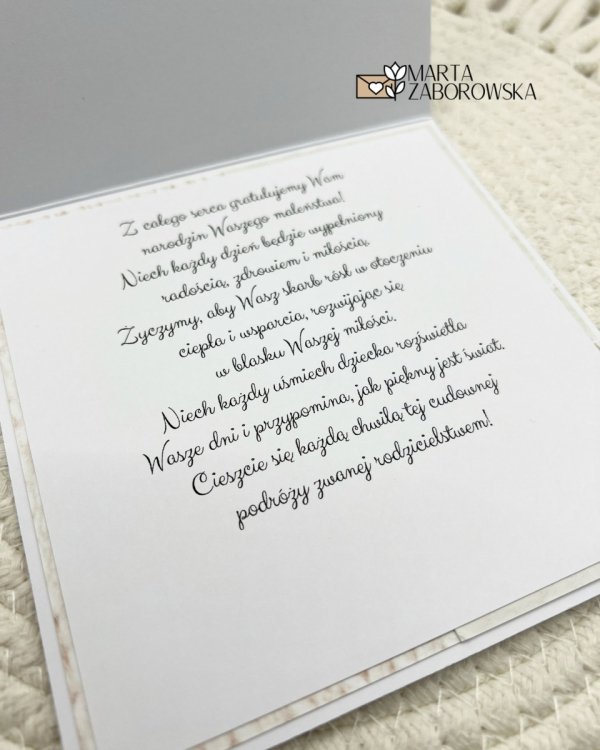 MARTA
ZABOROWSKA
Z całego serca gratulujemy Wam
narodzin Waszego maleństwa!
Niech każdy dzień będzie wypełniony
radością, zdrowiem i miłością.
Życzymy, aby Wasz skarb rósł w otoczeniu
ciepła i wsparcia, rozwijając się
w blasku Waszej miłości.
Niech każdy uśmiech dziecka rozświetla
Wasze dni i przypomina, jak piękny jest świat.
Cieszcie się każdą chwilą tej cudownej
podróży zwanej rodzicielstwem!